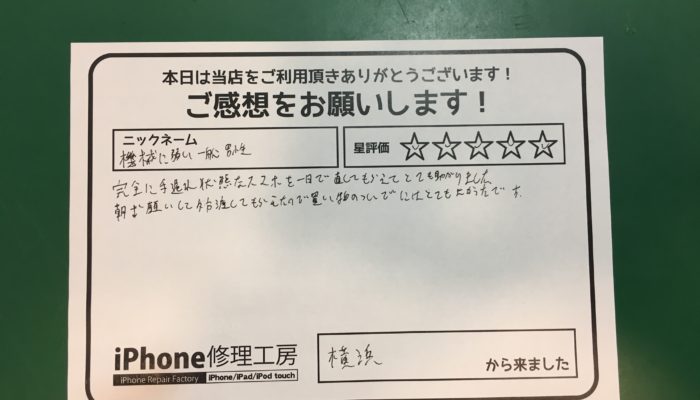 本日は当店をご利用頂きありがとうございます！
ご感想をお願いします！
ニックネーム
機械に弱い一般男性
星評価
完全に手遅れ状態なスマホを一日で直してもらえてとても助かりました
朝お願いして夕方渡してもらえたので買い物のついでにはとてもよかったです。
iPhone修理工房
iPhone Repair Factory iPhone/iPad/iPod touch
横浜
から来ました